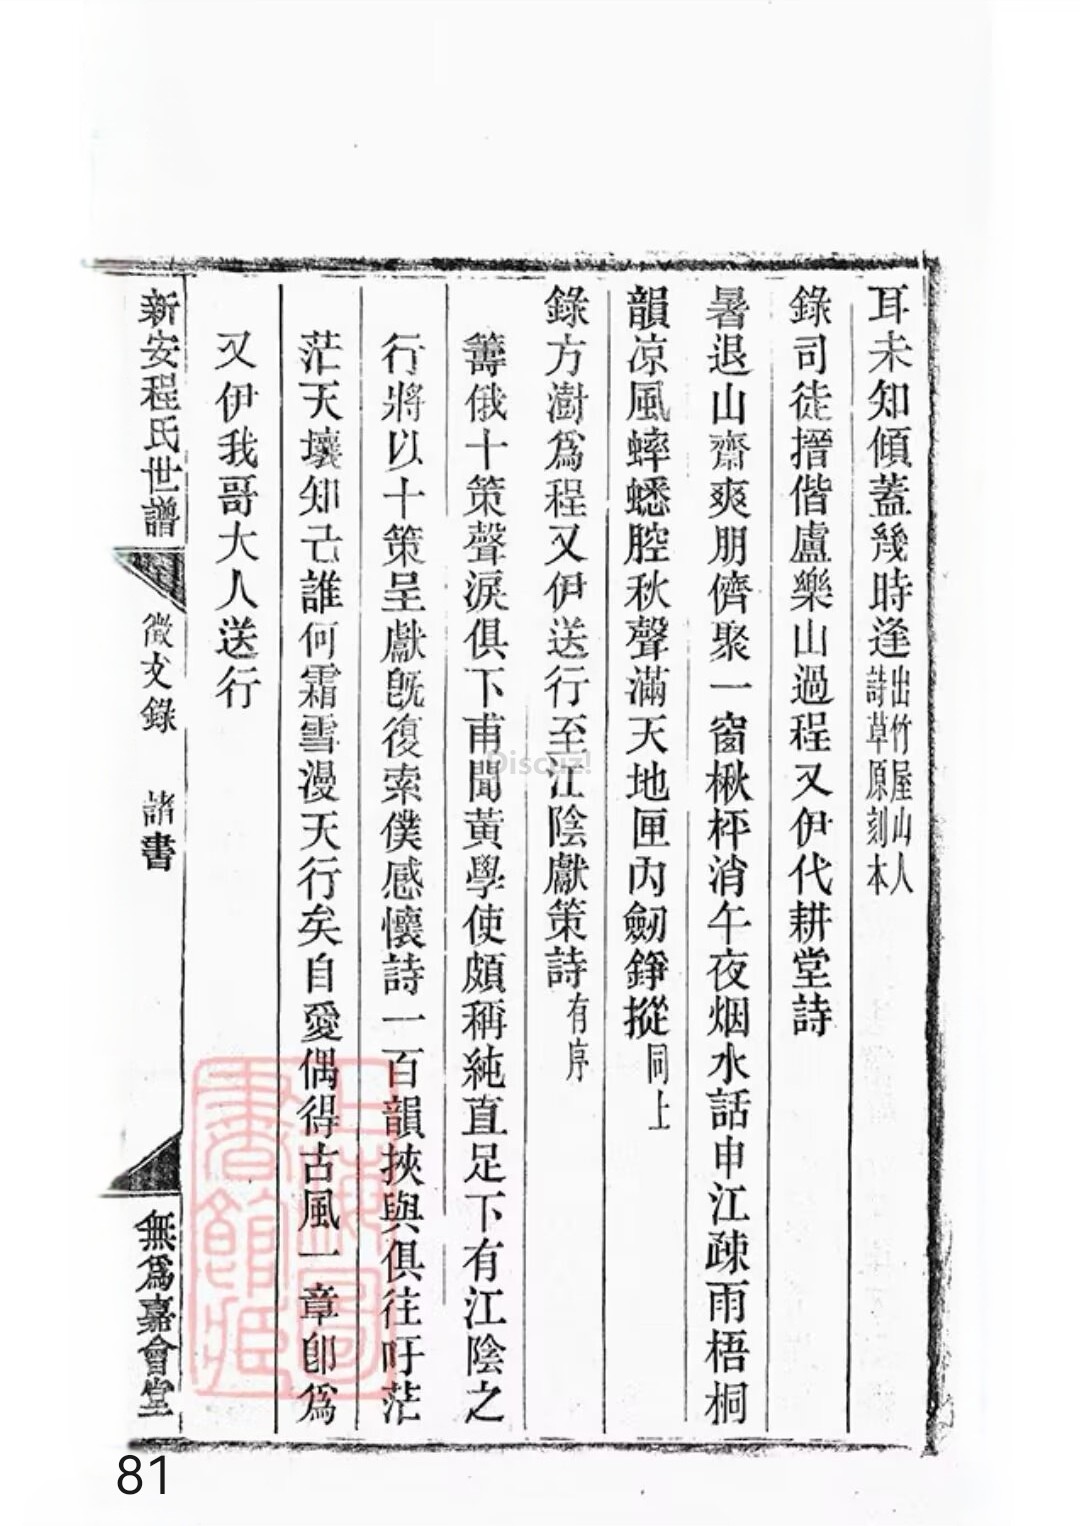 耳未知傾蓋幾時逢出竹屋山人詩草原刻本
錄司徒搢偕盧樂山過程又伊代耕堂詩
暑退山齋爽朋儕聚一窗楸枰消午夜烟水話申江疎雨梧桐
韻凉風蟀蟋腔秋聲滿天地匣內劒錚摐同上
錄方澍爲程又伊送行至江陰獻策詩有序
籌俄十策聲淚俱下甫聞黃學使頗稱純直足下有江陰之
行將以十策呈獻旣復索僕感懷詩一百韻挾與俱往吁茫
茫天壤知己誰何霜雪漫天行矣自愛偶得古風一章卽爲
又伊我哥大人送行
新安程氏世譜 徵文錄 諸書 無爲嘉會堂
上海圖書館藏
Discuz!
81